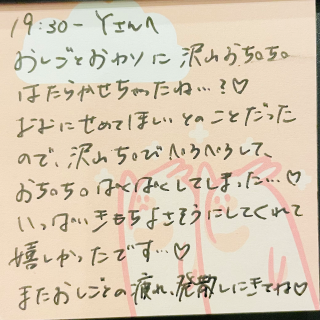 19:30ー Yさんへ
おしごとおわりに 沢山おち○ち○
はたらかせちゃったね…?♡
おおにせめてほしいとのことだった
ので、沢山ち○びぺろぺろして、
おち○ち○ぱくぱくしてしまった…♡
いっぱいきもちよさそうにしてくれて
嬉しかったです…♡
またおしごとの疲れ、発散しにきてね♡